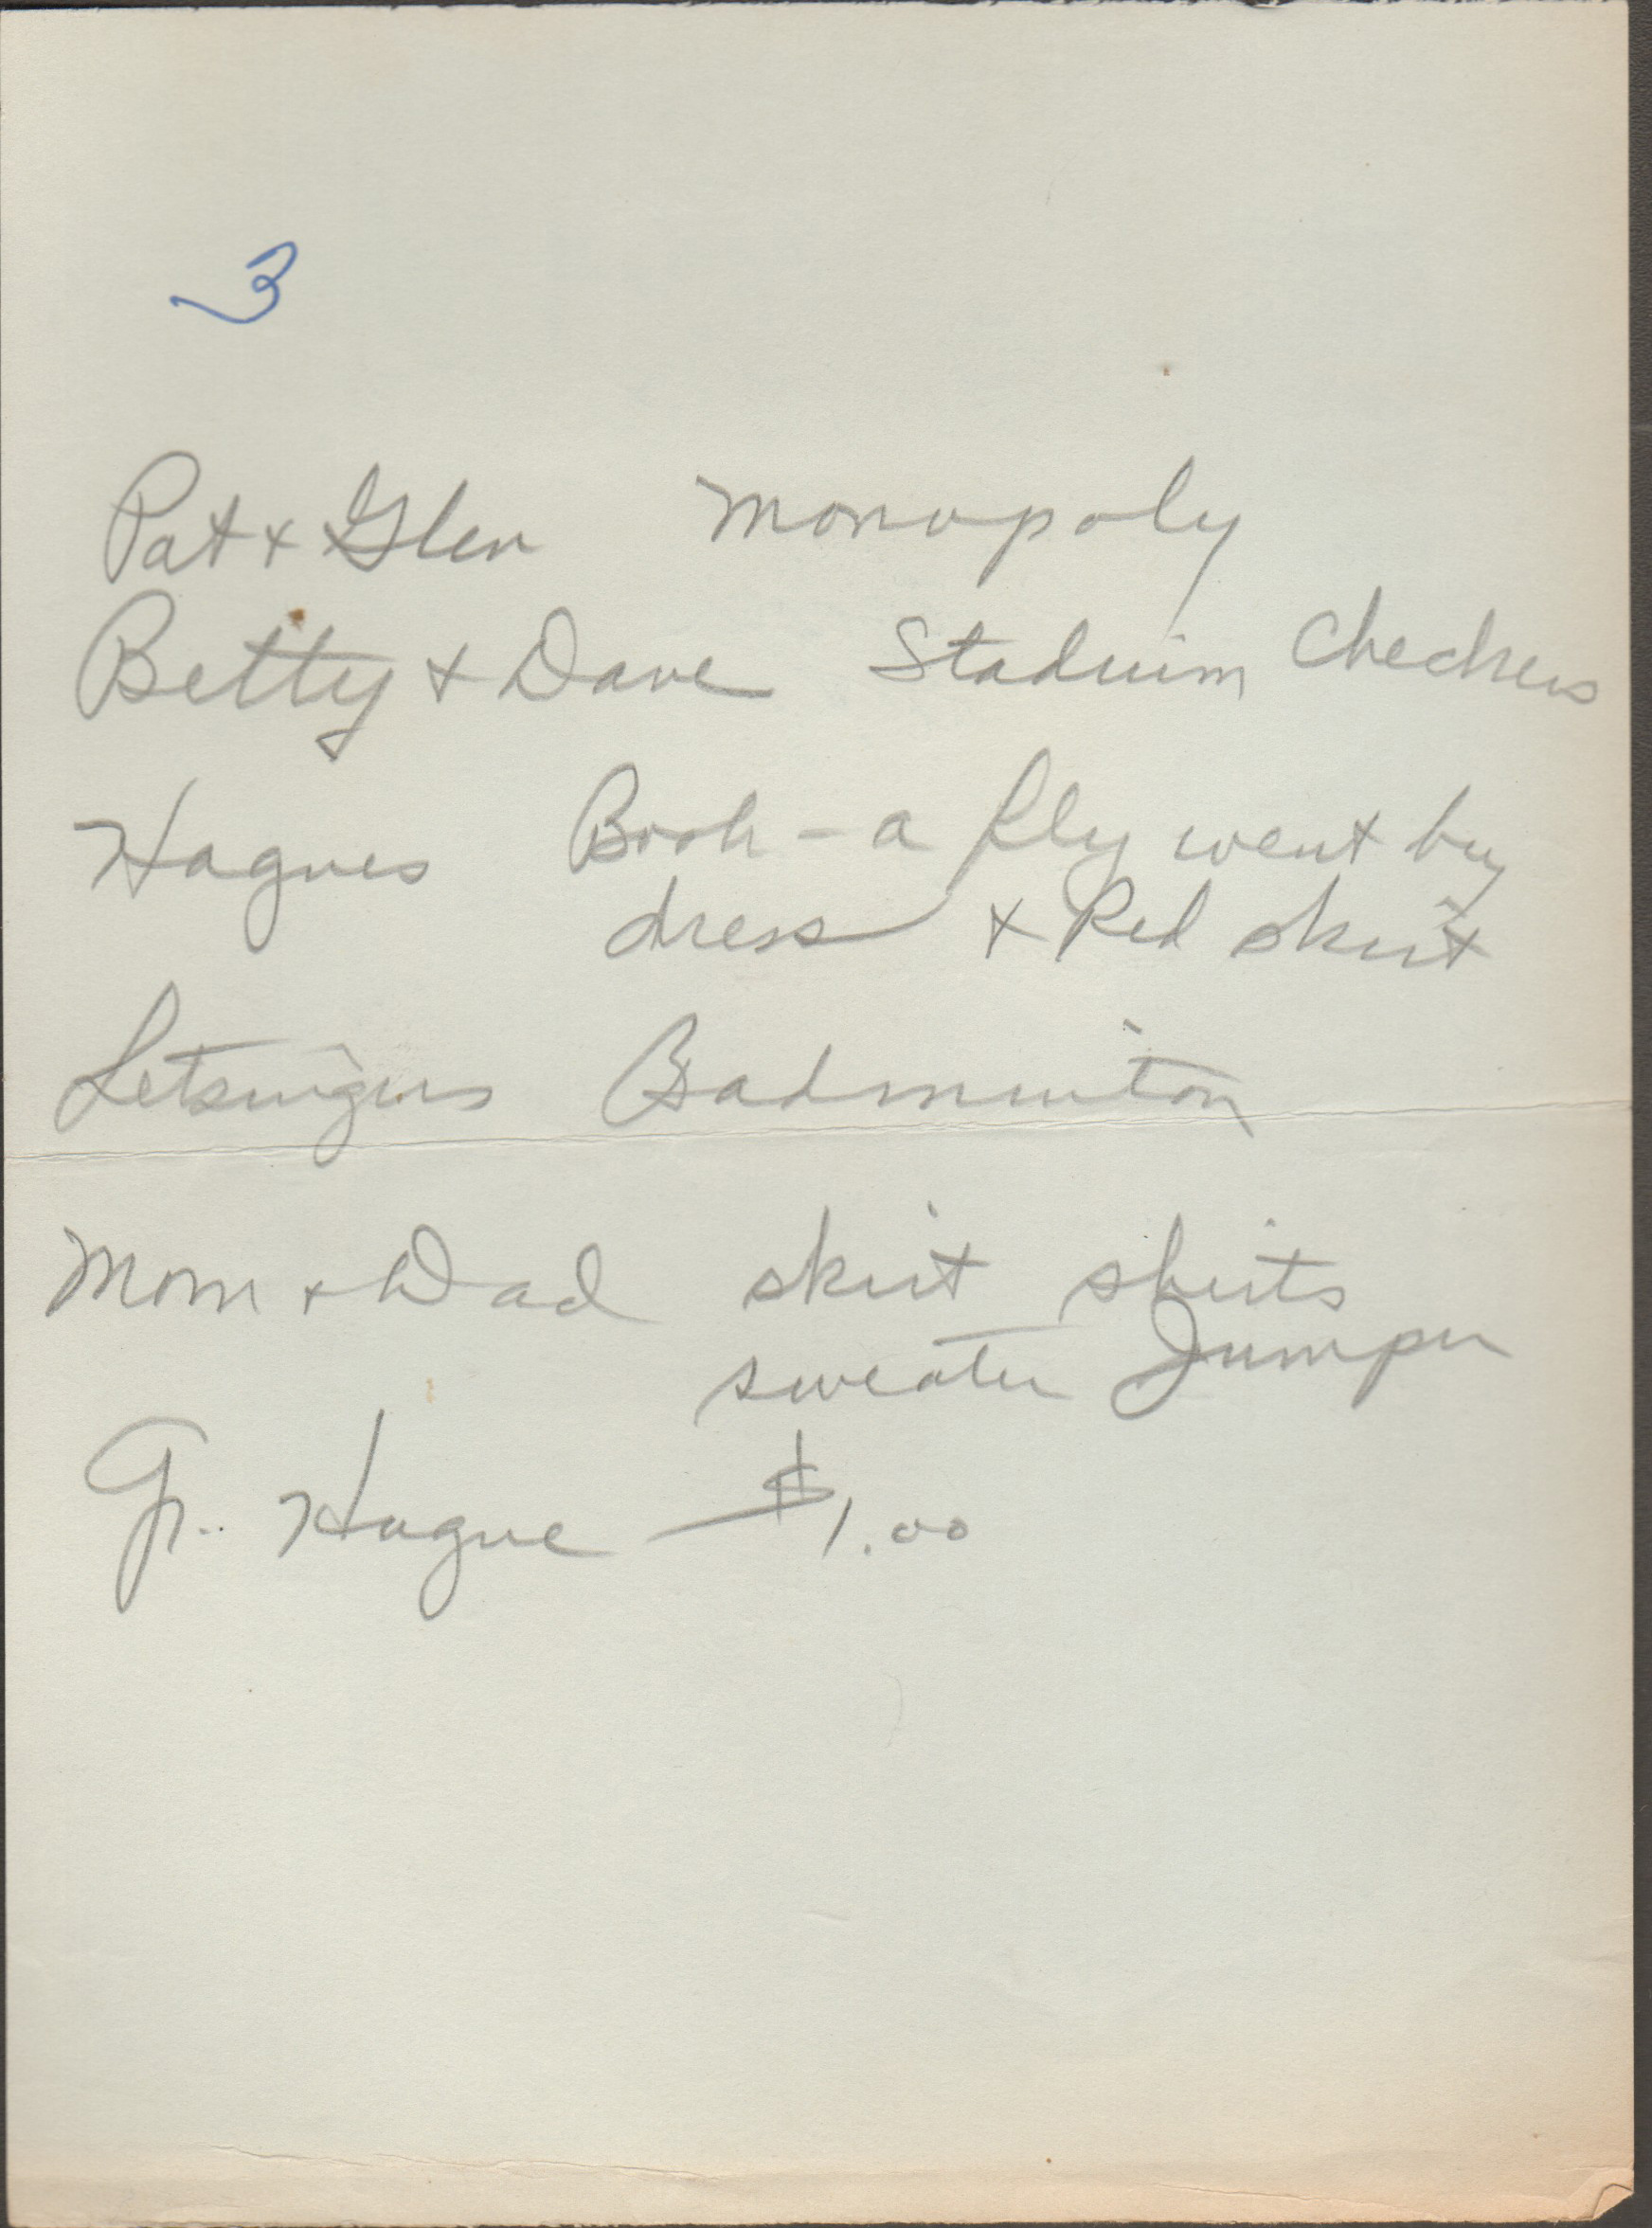 3
Pat + Glen Monopoly
Betty + Dave Stadium Checkers
Hagues Book - a fly went by
dress + Red skirt
Letsingers Badminton
Mom + Dad skirt shirts
sweater Jumper
Gr.. Hague — $1.00